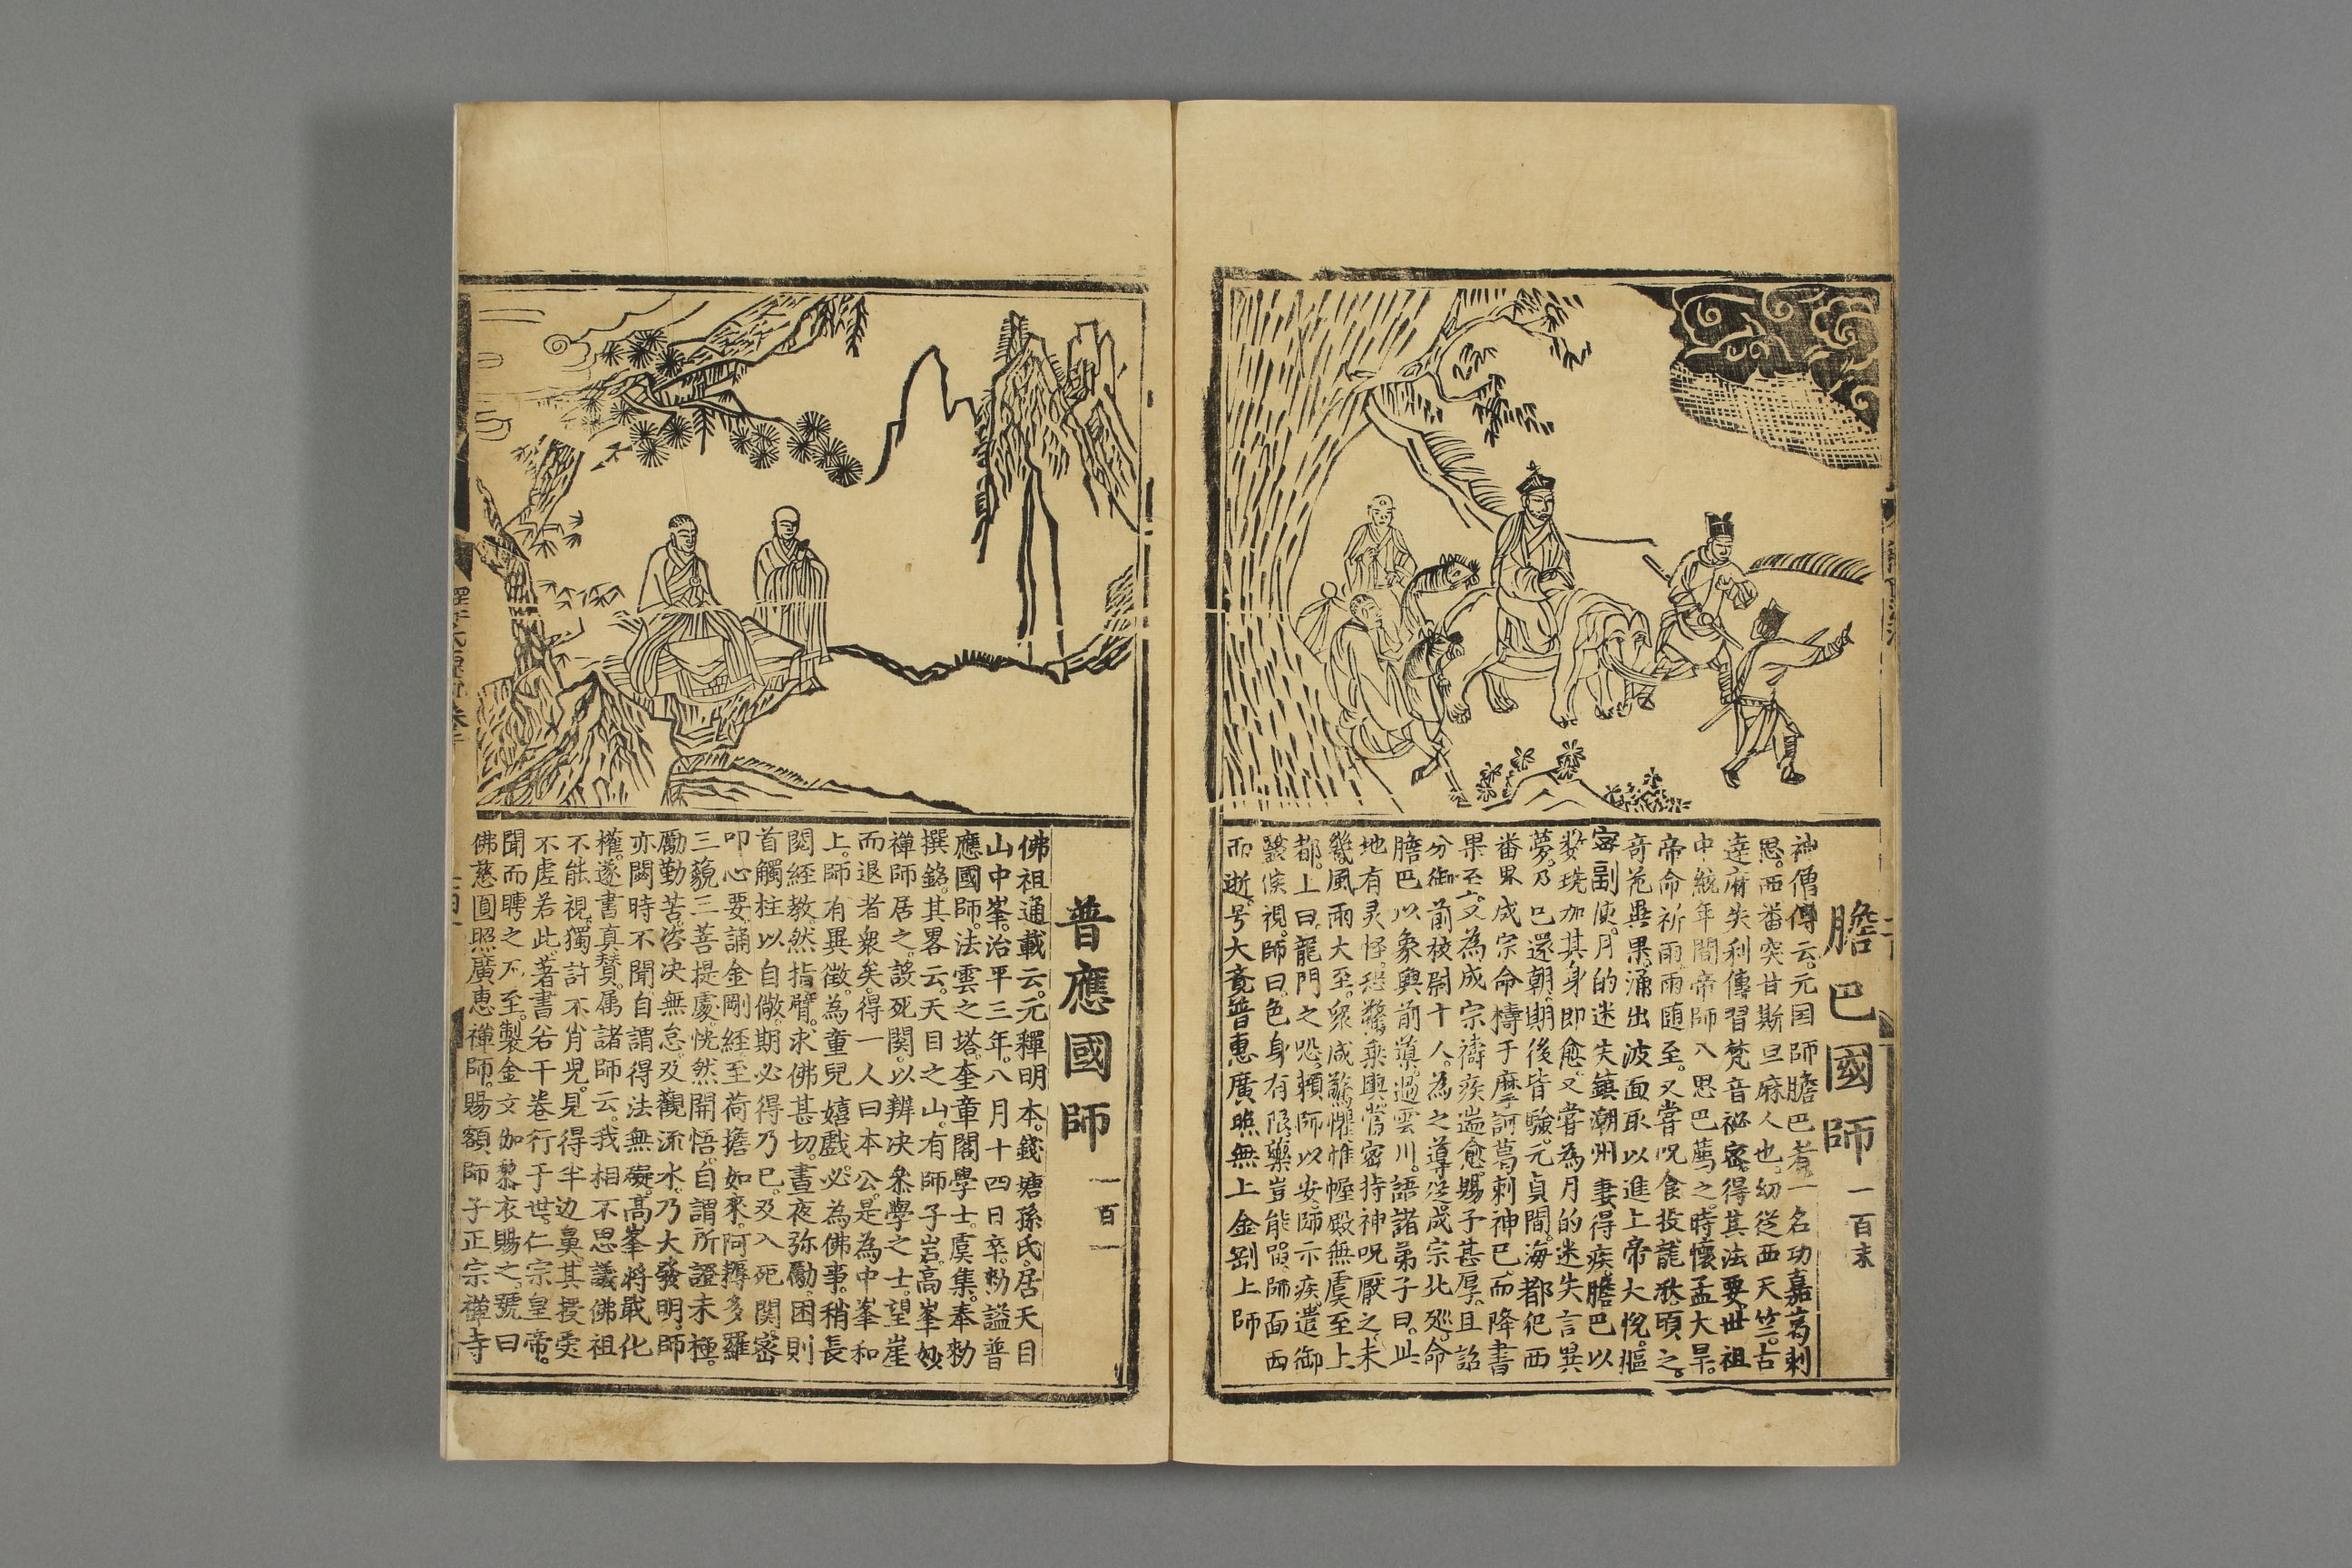 膽巴國師
一百末
神僧傳云。元国師膽巴者一名功嘉葛剌
思。西番突甘斯旦麻人也。幼從西天竺。古
達麻失利傳習梵音祕密得其法要。世祖
中統年間帝師八思巴薦之。時懷孟大旱。
帝命祈雨。雨随至。又嘗呪食投龍湫。頃之。
奇花異果。涌出波面。取以進上。帝大悅。樞
密副使。月的迷失鎮潮州。妻得疾。膽巴以
数珠加其身即愈。又嘗為月的迷失言異
夢。乃已還朝。期後皆驗。元貞間。海都犯西
番界成宗命禱于摩訶葛剌神已。而降書
果至。又為成宗禱疾遄愈。賜予甚厚。且詔
分御前校尉十人。為之導從。成宗北巡。命
膽巴以象輿前導。過雲川。語諸弟子曰。此
地有灵怪。恐驚乗輿當密持神呪厭之。未
幾風雨大至。衆咸驚懼惟幄殿無虞。至上
都。上曰。龍門之呪。頼師以安。師示疾。遣御
醫侯視。師曰。色身有限藥豈能留。師面西
而逝。号大竟普惠廣照無上金剛上師
普應國師
一百一
佛祖通載云。元釋明本。錢塘孫氏。居天目
山中峯。治平三年。八月十四日卒。勅謚普
應國師。法雲之塔。奎章閣學士。虞集。奉勅
撰銘。其畧云。天目之山。有師子岩。高峯妙
禪師居之。設死関。以辨决叅學之士。望崖
而退者衆矣。得一人曰本公。是為中峯和
上。師有異徵。為童兒嬉戲。必為佛事。稍長
閱経教。然指臂。求佛甚切。晝夜弥勵。困則
首觸柱以自儆。期必得乃已。及入死関。密
叩心要。誦金剛経。至荷擔如來。阿耨多羅
三藐三菩提處恍然開悟。自謂所證未極。
勵勤苦。咨决無怠。及觀流水。乃大發明。師
亦闕時不聞自謂得法無礙。高峯將戢化
權。遂書真賛。属諸師云。我相不思議。佛祖
不能視。獨許不肖児。見得半边鼻。其授受
不虚若此。著書若干巻行于世。仁宗皇帝。
聞而聘之不至。製金文伽黎衣賜之。號曰
佛慈圓照廣惠禪師。賜額師子正宗禪寺